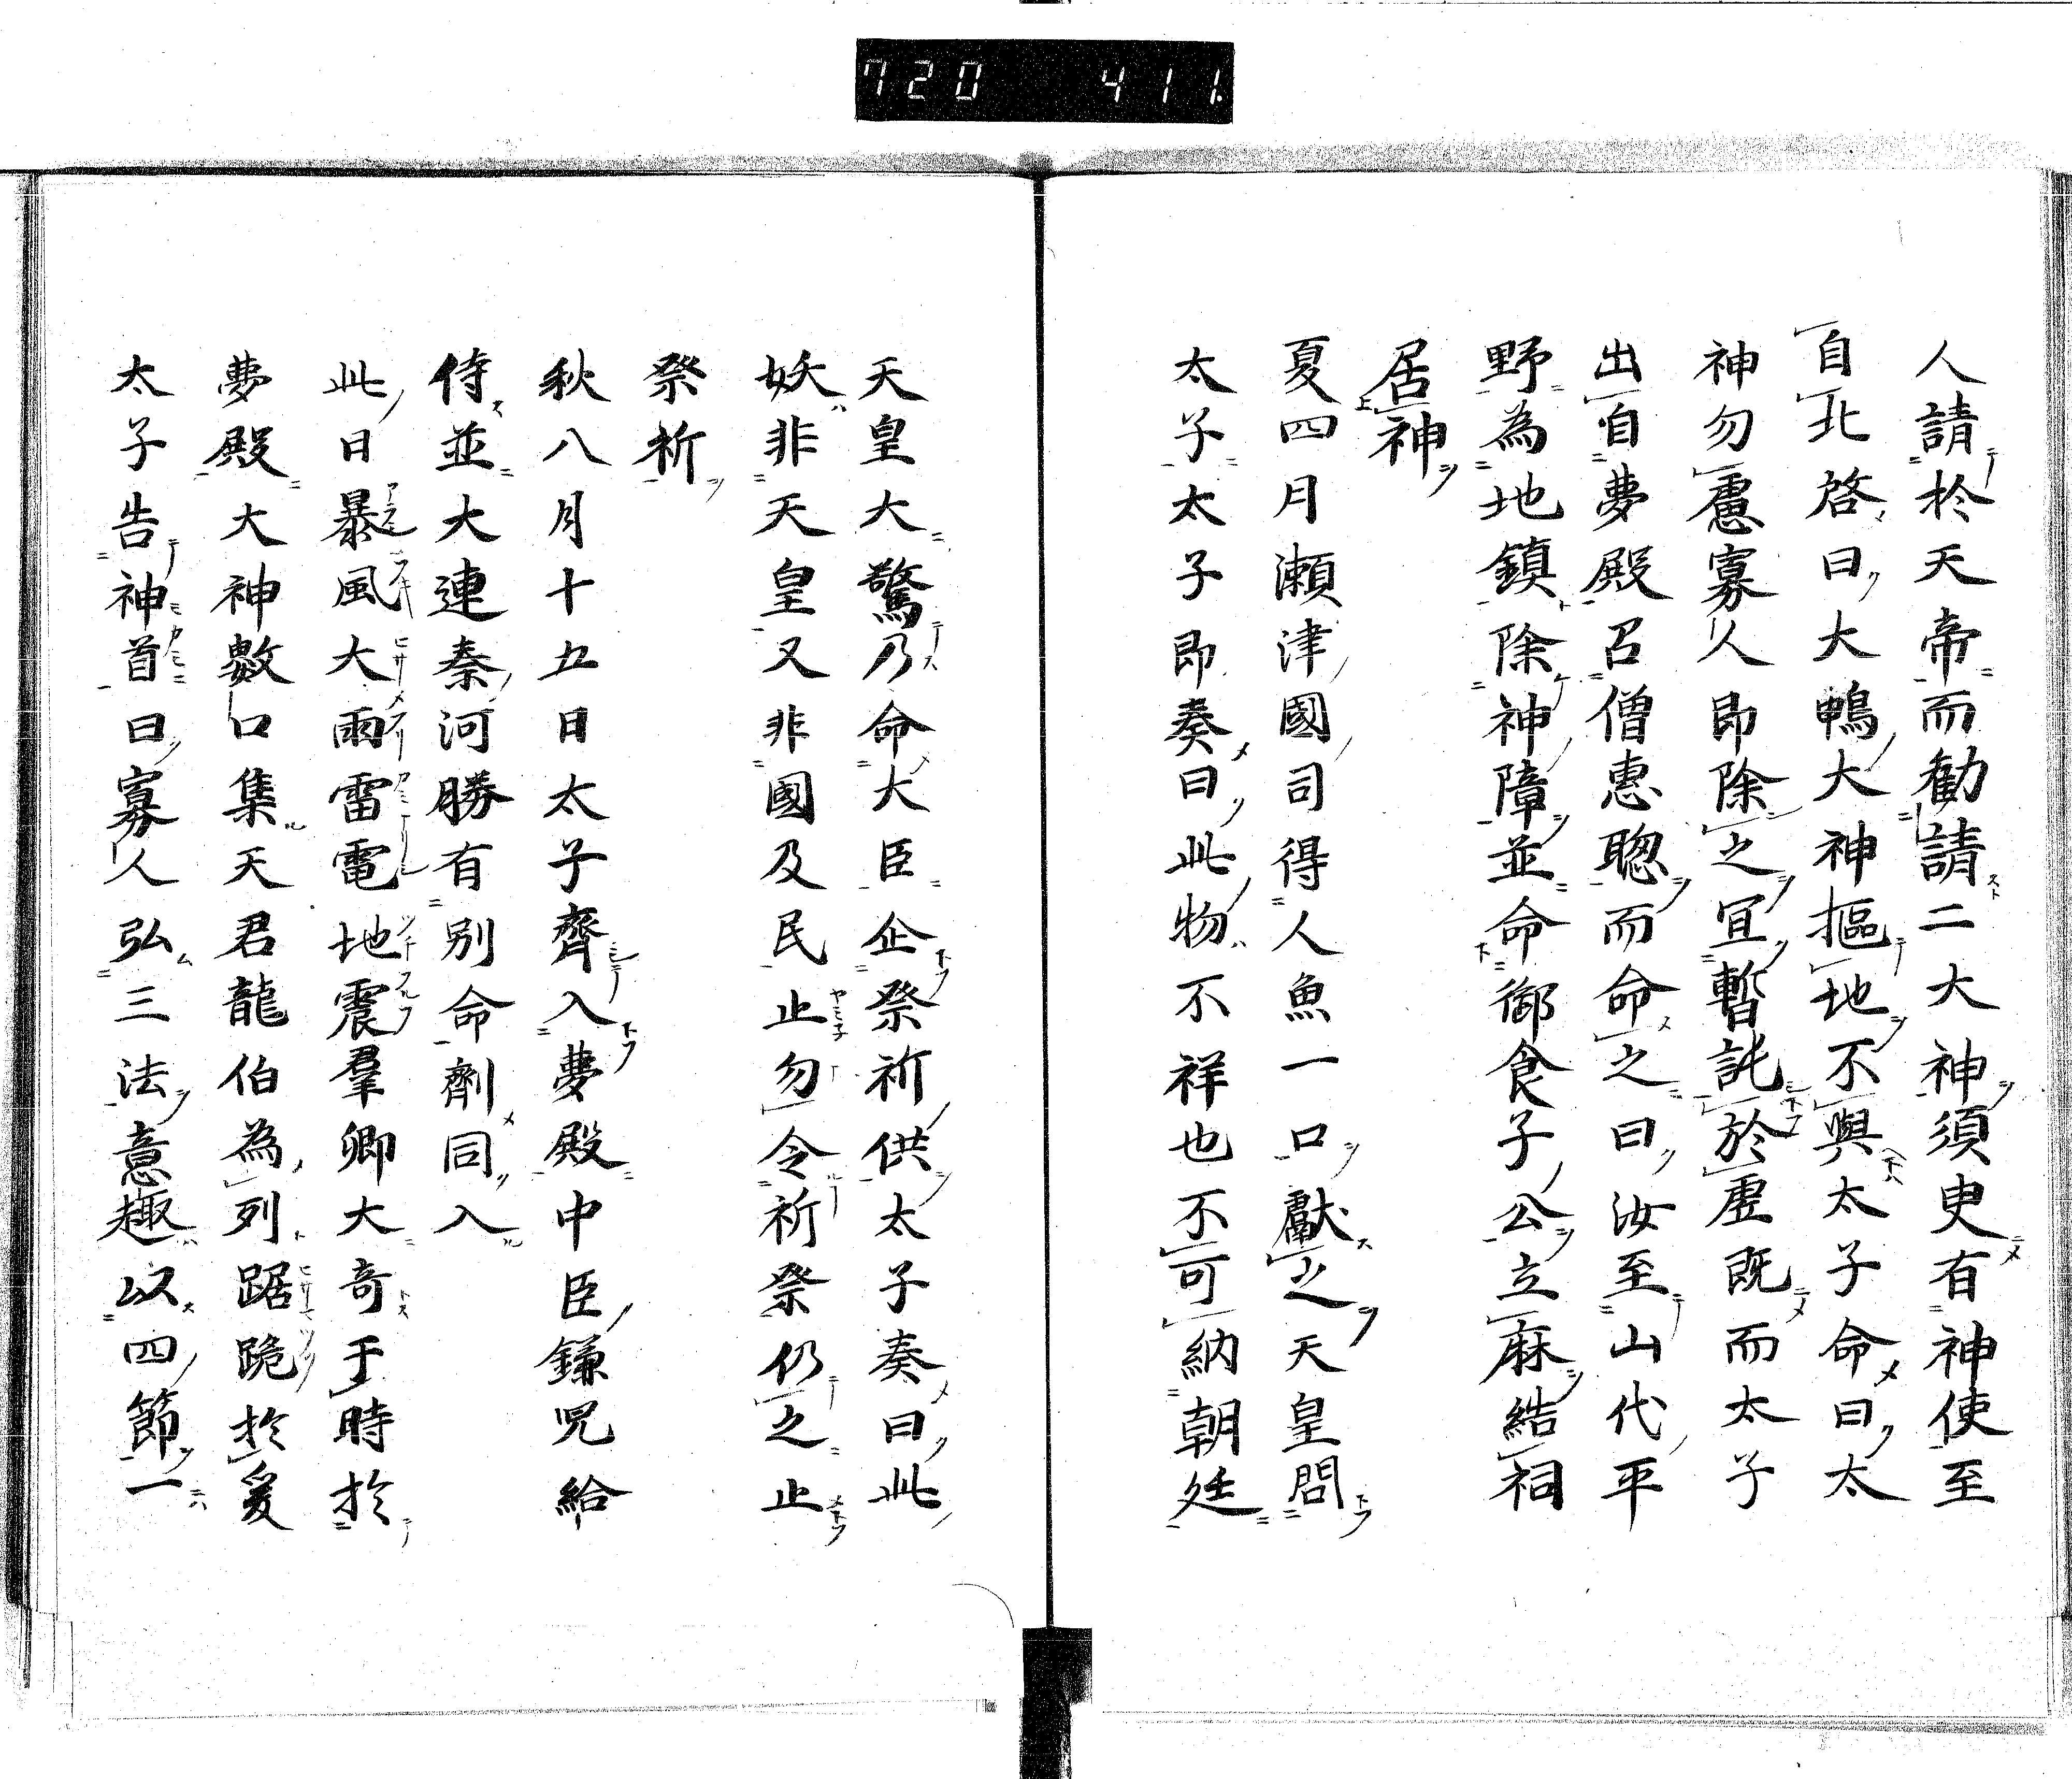 720 411.
人請於天帝而勧請二大神須臾有神使至
自北啓曰大鴨大神摳地不與太子命曰太
神勿慮寡人即除之宜暫託於虛既而太子
出自夢殿召僧恵聡而命之曰汝至山代平
野為地鎮除神障並命御食子公立麻結祠
居神
夏四月瀬津國司得人魚一口獻之天皇問
太子太子即奏曰此物不祥也不可納朝廷
天皇大驚乃命大臣企祭祈供太子奏曰此
妖非天皇又非國及民止勿令祈祭仍之止
祭祈
秋八月十五日太子齊入夢殿中臣鎌児給
侍並大連秦河勝有別命劑同入
此日暴風大雨雷電地震羣卿大奇于時於
夢殿大神數口集天君龍伯為列踞跪於爰
太子告神首曰寡人弘三法意趣以四節一